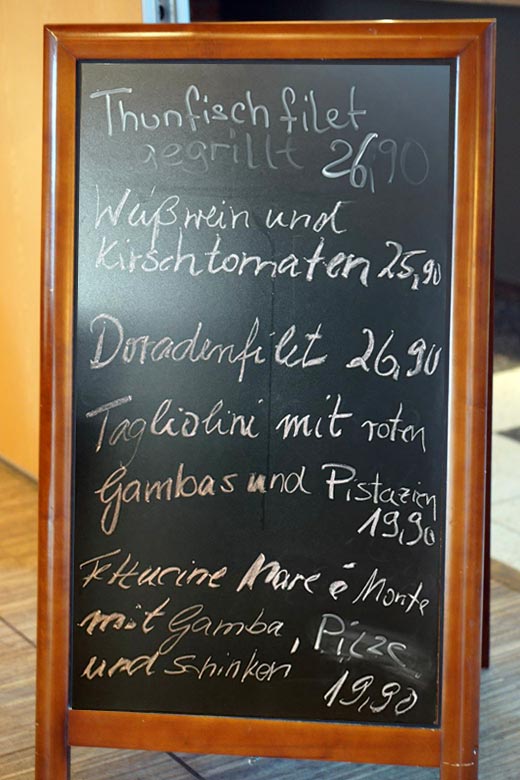 Thunfischfilet
gegrillt 26,90
Weißwein und
Kirschtomaten 25,90
Doradenfilet 26,90
Tagliolini mit roten
Gambas und Pistazien
19,90
Fettucine Mare é Monte
mit Gamba, Pilze
und Schinken
19,90